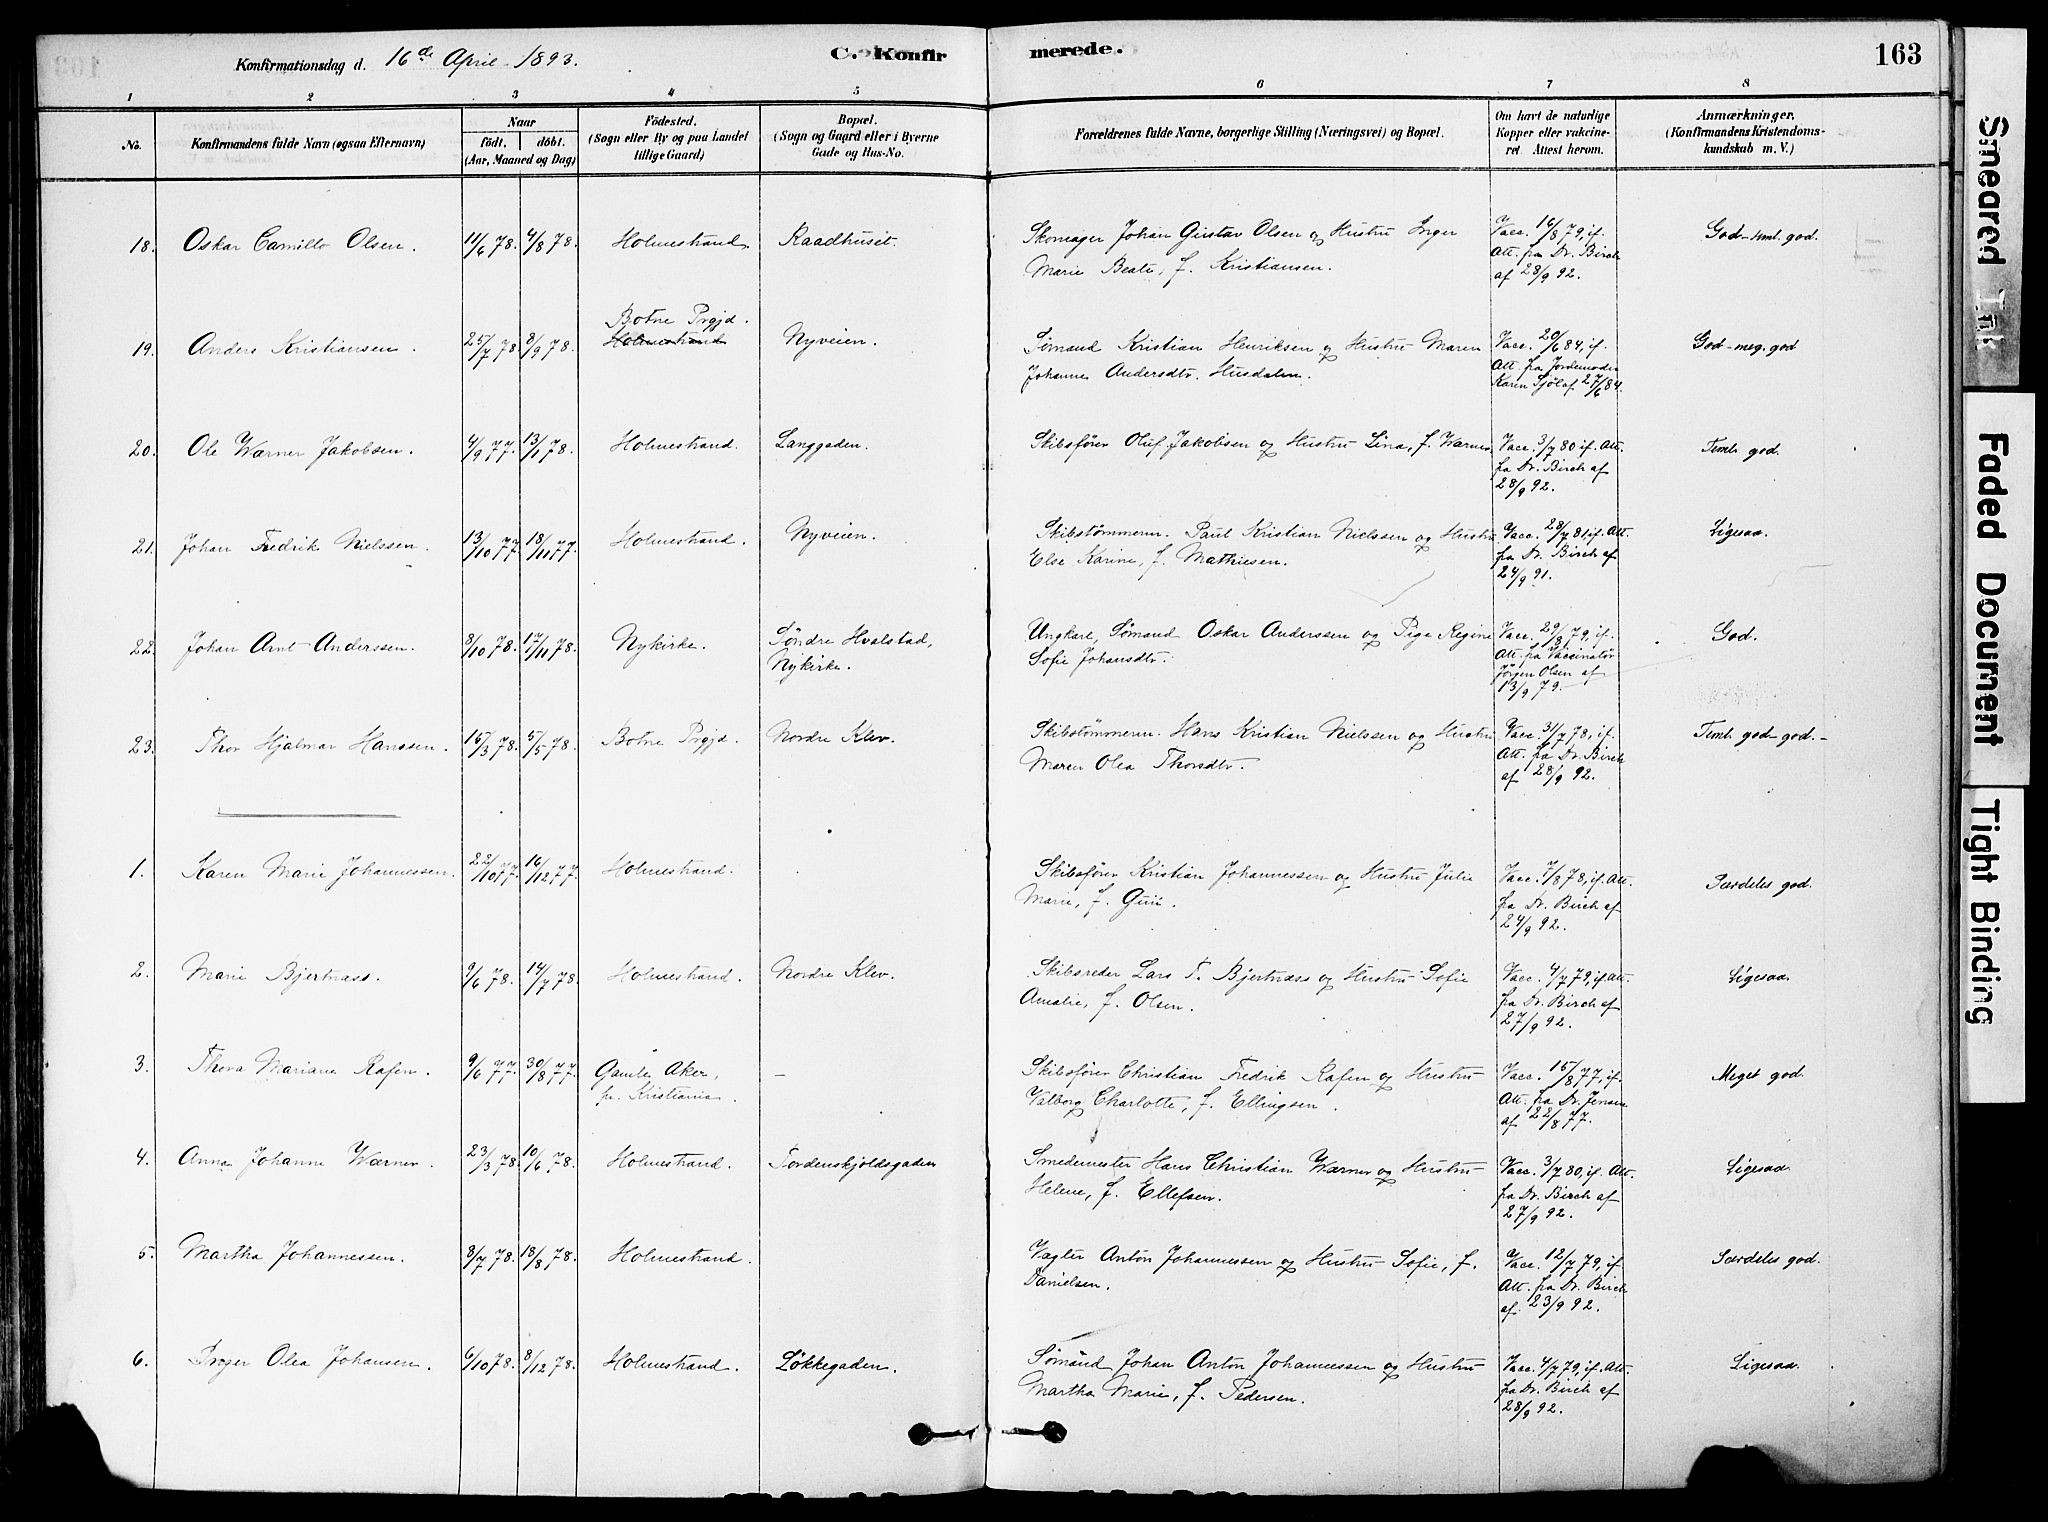 Konfirmationsdag d. 16de April 1893.
C. Konfirmerede.
163
1 2 3 4 5 6 7 8
No.
Konfirmandens fulde Navn (ogsaa Efternavn)
Naar
født. døbt.
(Aar, Maaned og Dag)
Fødested.
(Sogn eller By og paa Landet
tillige Gaard)
Bopæl.
(Sogn og Gaard eller i Byerne
Gade og Hus-No.
Forældrenes fulde Navne, borgerlige Stilling (Næringsvei) og Bopæl.
Om havt de naturlige
Kopper eller vakcine-
ret. Attest herom.
Anmærkninger.
(Konfirmandens Kristendoms-
kundskab m. V.)
18. Oskar Camillo Olsen. 11/6 78. 4/8 78. Holmestrand. Raadhuset. Skomager Johan Gustav Olsen og Hustru Inger Vacc. 16/8 79, if. God - teml. god.
Marie Beate, f. Kristiansen. Att. fra Dr. Birch
af 28/9 92.
Botne Prgjd.
19. Anders Kristiansen. 25/7 78. 8/9 78. Holmestrand Nyveien. Sømand Kristian Henriksen og Hustru Maren Vacc. 20/6 84, if. God - meg. god
Johanne Andersdtr. Husdalen. Att. fra Jordemoder
Karen Sjøl af 27/6 84.
20. Ole Wærner Jakobsen. 4/9 77. 13/1 78. Holmestrand. Langgaden. Skibsfører Oluf Jakobsen og Hustru Lina, f. Wærner. Vacc. 3/7 80 if. Att. Teml. god.
fra Dr. Birch af
28/9 92.
21. Johan Fredrik Nielssen. 13/10 77. 18/11 77. Holmestrand. Nyveien. Skibstømmerm. Paul Kristian Nielssen og Hustru Vacc. 28/7 81, if. Att. Ligesaa.
Else Karine, f. Mathiesen. fra Dr. Birch af
24/9 91.
22. Johan Arnt Anderssen. 8/10 78. 17/11 78. Nykirke. Søndre Hvalstad, Ungkarl, Sømand Oskar Anderssen og Pige Regine Vacc. 29/8 79, if. God.
Nykirke. Sofie Johansdtr. Att. fra Vaccinatør
Jørgen Olsen af
13/9 79.
23. Thor Hjalmar Hanssen. 15/3 78. 5/5 78. Botne Prgjd. Nordre Klev. Skibstømmerm. Hans Kristian Nielssen og Hustru Vacc. 31/7 78, if. Teml. god - god. -
Maren Olea Thorsdtr. Att. fra Dr. Birch
af 28/9 92.
1. Karen Marie Johannessen. 22/10 77. 16/12 77. Holmestrand. Skibsfører Kristian Johannessen og Hustru Julie Vacc. 7/8 78, if. Att. Særdeles god.
Marie, f. fra Dr. Birch af
24/9 92.
2. Marie Bjertnæss. 9/6 78. 14/7 78. Holmestrand. Nordre Klev. Skibsreder Lars T. Bjertnæss og Hustru Sofie Vacc. 4/7 79, if. Att. Ligesaa.
Amalie, f. Olsen. fra Dr. Birch af
27/9 92.
3. Thora Mariane Rafen. 9/6 77. 30/8 77. Gamle Aker, - Skibsfører Christian Fredrik Rafen og Hustru Vacc. 15/8 77, if. Meget god.
pr. Kristiania. Valborg Charlotte, f. Ellingsen. Att. fra Dr. Jensen
af 22/8 77.
4. Anna Johanne Wærner. 23/3 78. 10/6 78. Holmestrand. Tordenskjoldsgaden Smedemester Hans Christian Wærner og Hustru Vacc. 3/7 80, if. Att. Ligesaa.
Helene, f. Ellefsen. fra Dr. Birch af
27/9 92.
5. Martha Johannessen. 8/7 78. 18/8 78. Holmestrand. Vægter Anton Johannessen og Hustru Sofie, f. Vacc. 12/7 79, if. Særdeles god.
Danielsen. Att. fra Dr. Birch
af 23/9 92.
6. Inger Olea Johansen. 6/10 78. 8/12 78. Holmestrand. Løkkegaden. Sømand Johan Anton Johannessen og Hustru Vacc. 4/7 79, if. Att. Ligesaa.
Martha Marie, f. Pedersen. fra Dr. Birch af
28/9 92.
Smeared Ink
Faded Document
Tight Binding